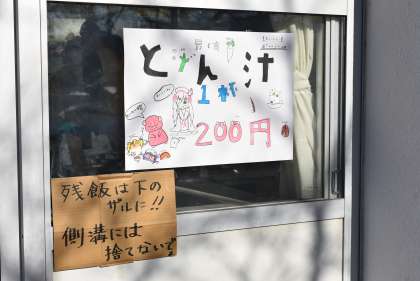 とん汁
1杯
200円
残飯は下の
ザルに!!
側溝には
捨てないで